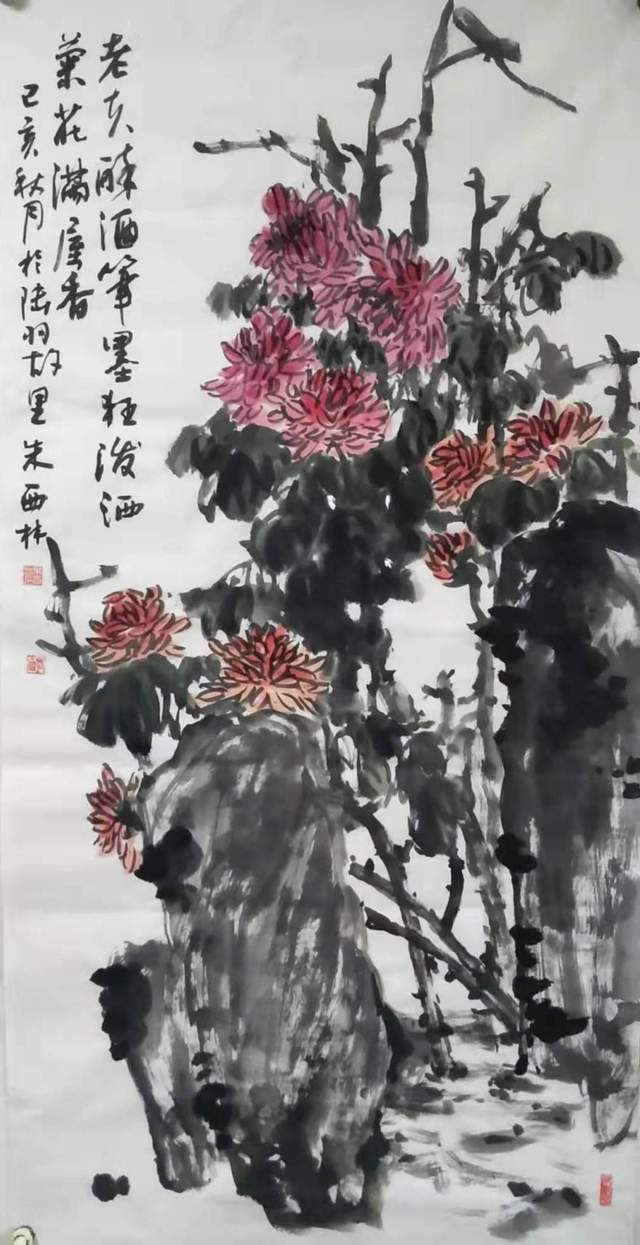 老夫醉酒筆墨狂泼洒
菊花满屋香
己亥秋月於陆羽故里朱西林